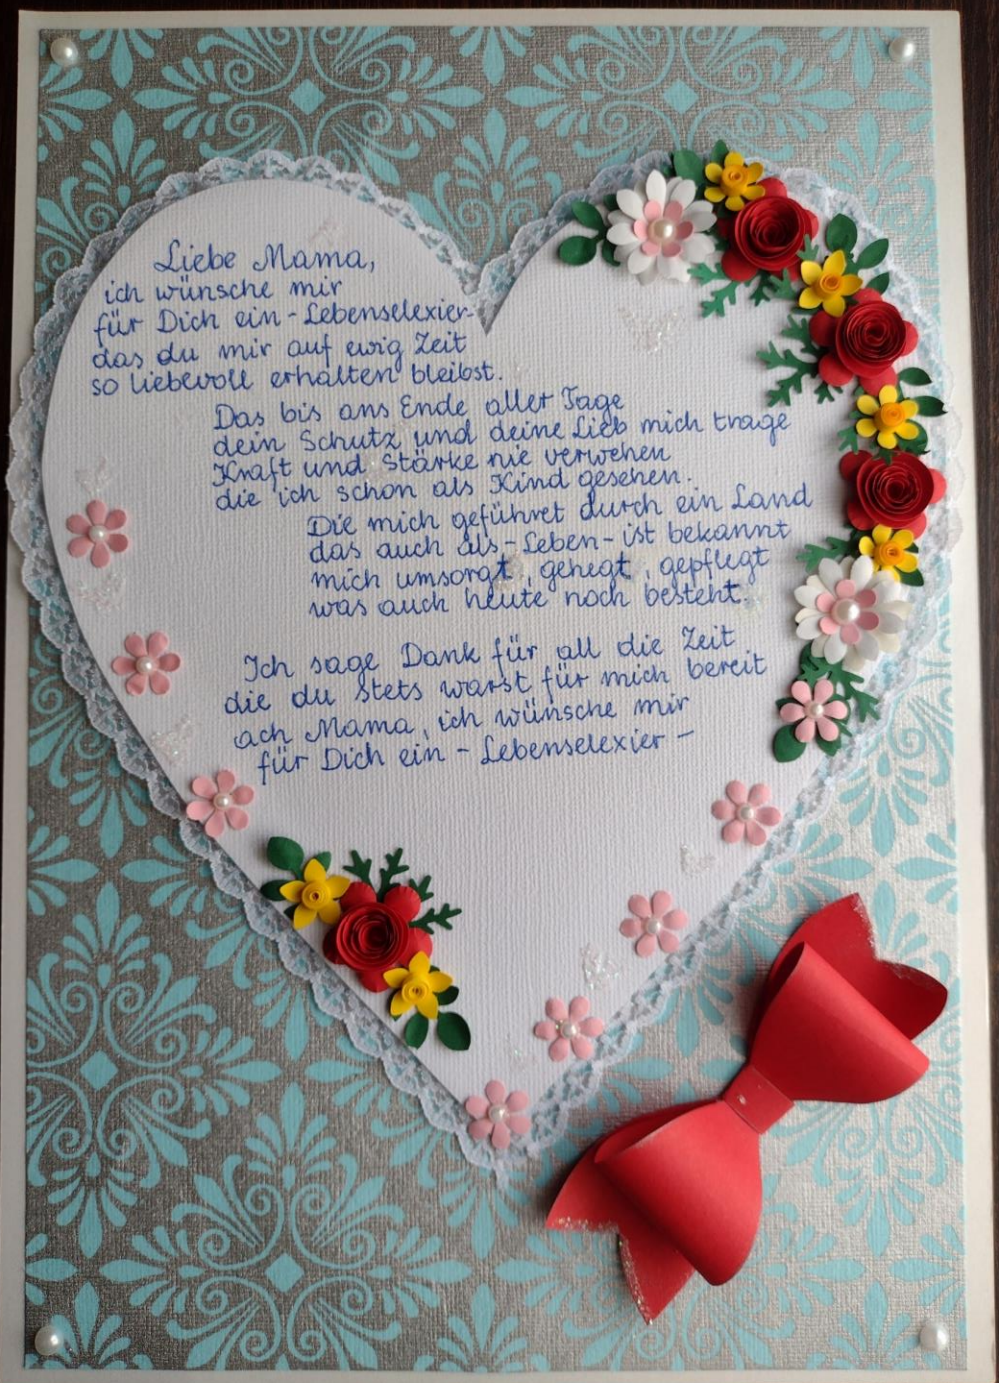 Liebe Mama,
ich wünsche mir
für Dich ein - Lebenselexier-
das du mir auf ewig Zeit
so liebevoll erhalten bleibst.
Das bis ans Ende aller Tage
dein Schutz und deine Lieb mich trage
Kraft und Stärke nie verwehen
die ich schon als Kind gesehen.
Die mich geführet durch ein Land
das auch als - Leben - ist bekannt
mich umsorgt, gehegt, gepflegt
was auch heute noch besteht.
Ich sage Dank für all die Zeit
die du stets warst für mich bereit
ach Mama, ich wünsche mir
für Dich ein - Lebenselexier -